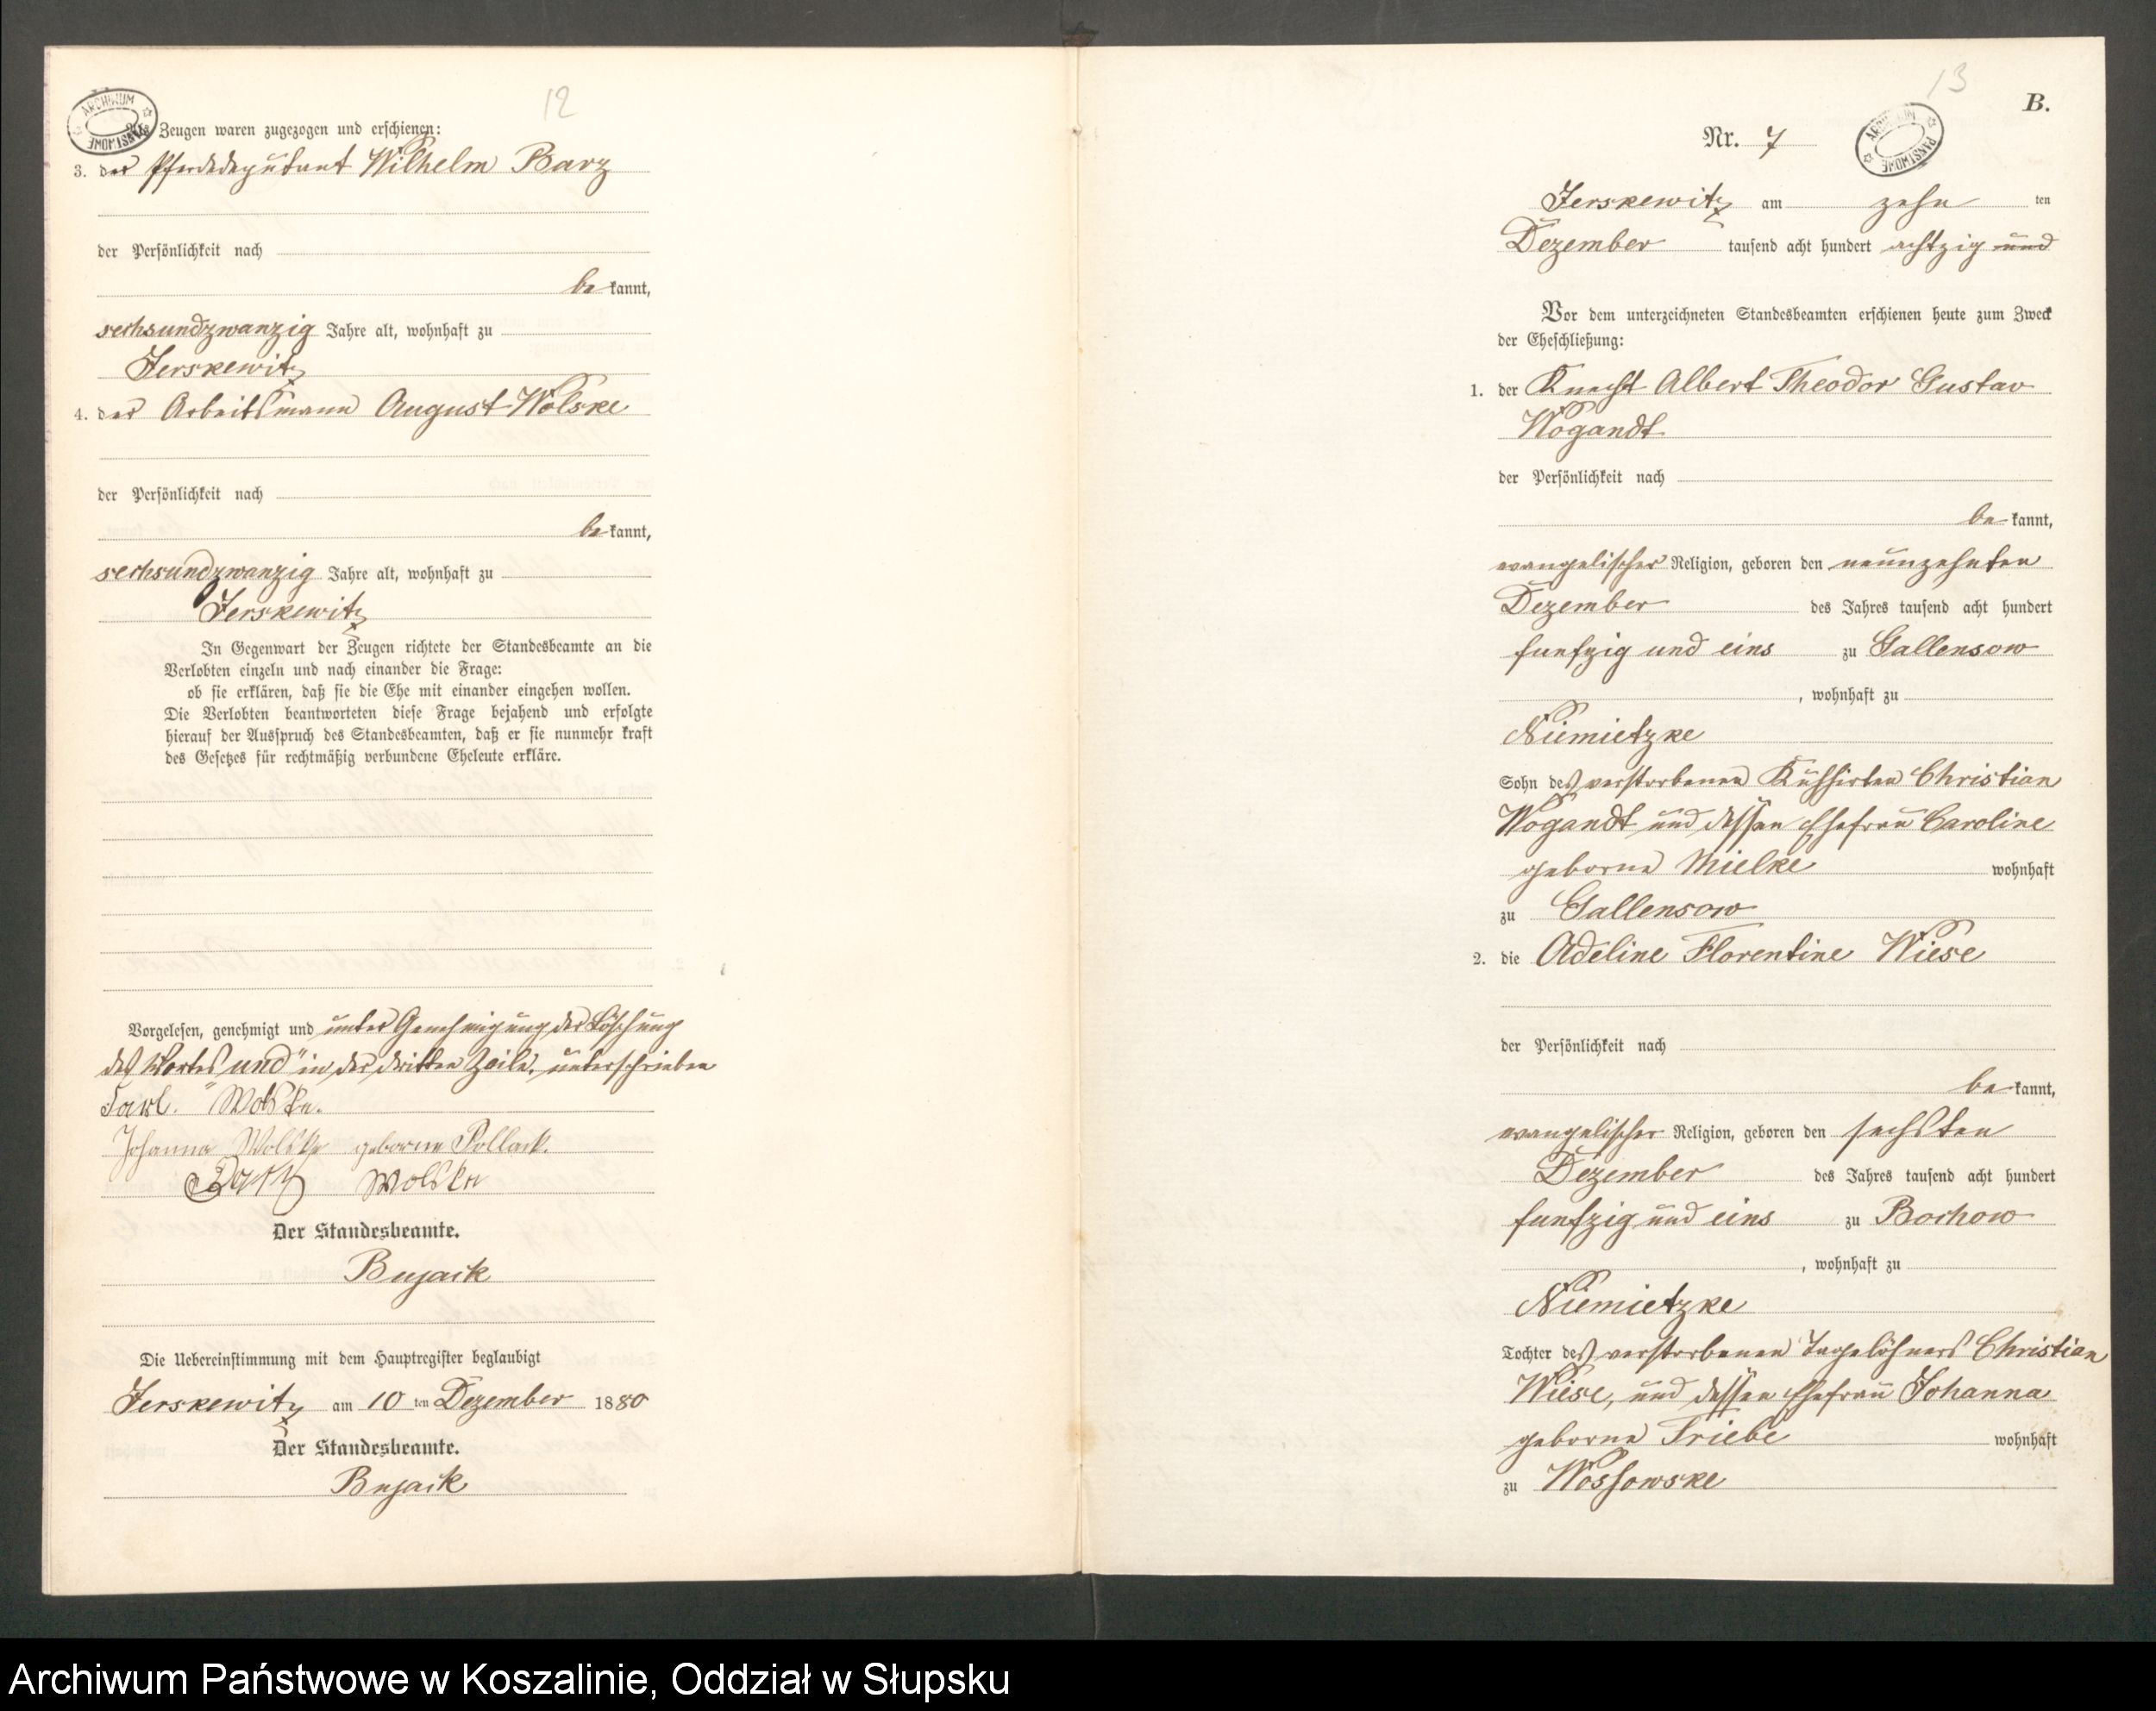 12
ARCHIWUM PAŃSTWOWE
Als Zeugen waren zugezogen und erschienen:
3. der Pferdedeputant Wilhelm Barz
der Persönlichkeit nach
be kannt,
sechsundzwanzig Jahre alt, wohnhaft zu
Jerskewitz
4. der Arbeitsmann August Wolske
der Persönlichkeit nach
be kannt,
sechsundzwanzig Jahre alt, wohnhaft zu
Jerskewitz
In Gegenwart der Zeugen richtete der Standesbeamte an die
Verlobten einzeln und nach einander die Frage:
ob sie erklären, daß sie die Ehe mit einander eingehen wollen.
Die Verlobten beantworteten diese Frage bejahend und erfolgte
hierauf der Ausspruch des Standesbeamten, daß er sie nunmehr kraft
des Gesetzes für rechtmäßig verbundene Eheleute erkläre.
Vorgelesen, genehmigt und unter Genehmigung der Löschung
des Wortes „und" in der dritten Zeile, unterschrieben
Carl Wolske.
Johanna Wolske geborne Pollack.
Barz Wolske
Der Standesbeamte.
Bujack
Die Uebereinstimmung mit dem Hauptregister beglaubigt
Jerskewitz am 10 ten Dezember 1880
Der Standesbeamte.
Bujack
13
B.
Nr. 7
ARCHIWUM PAŃSTWOWE
Jerskewitz am zehn ten
Dezember tausend acht hundert achtzig und
Vor dem unterzeichneten Standesbeamten erschienen heute zum Zweck
der Eheschließung:
1. der Knecht Albert Theodor Gustav
Wogandt
der Persönlichkeit nach
be kannt,
evangelischer Religion, geboren den neunzehnten
Dezember des Jahres tausend acht hundert
funfzig und eins zu Gallensow
, wohnhaft zu
Niemietzke
Sohn des verstorbenen Kuhhirten Christian
Wogandt und dessen Ehefrau Caroline
geborne Mielke wohnhaft
zu Gallensow
2. die Adeline Florentine Wiese
der Persönlichkeit nach
be kannt,
evangelischer Religion, geboren den sechsten
Dezember des Jahres tausend acht hundert
funfzig und eins zu Bochow
, wohnhaft zu
Niemietzke
Tochter des verstorbenen Tagelöhners Christian
Wiese, und dessen Ehefrau Johanna
geborne Triebe wohnhaft
zu Wossowske
Archiwum Państwowe w Koszalinie, Oddział w Słupsku